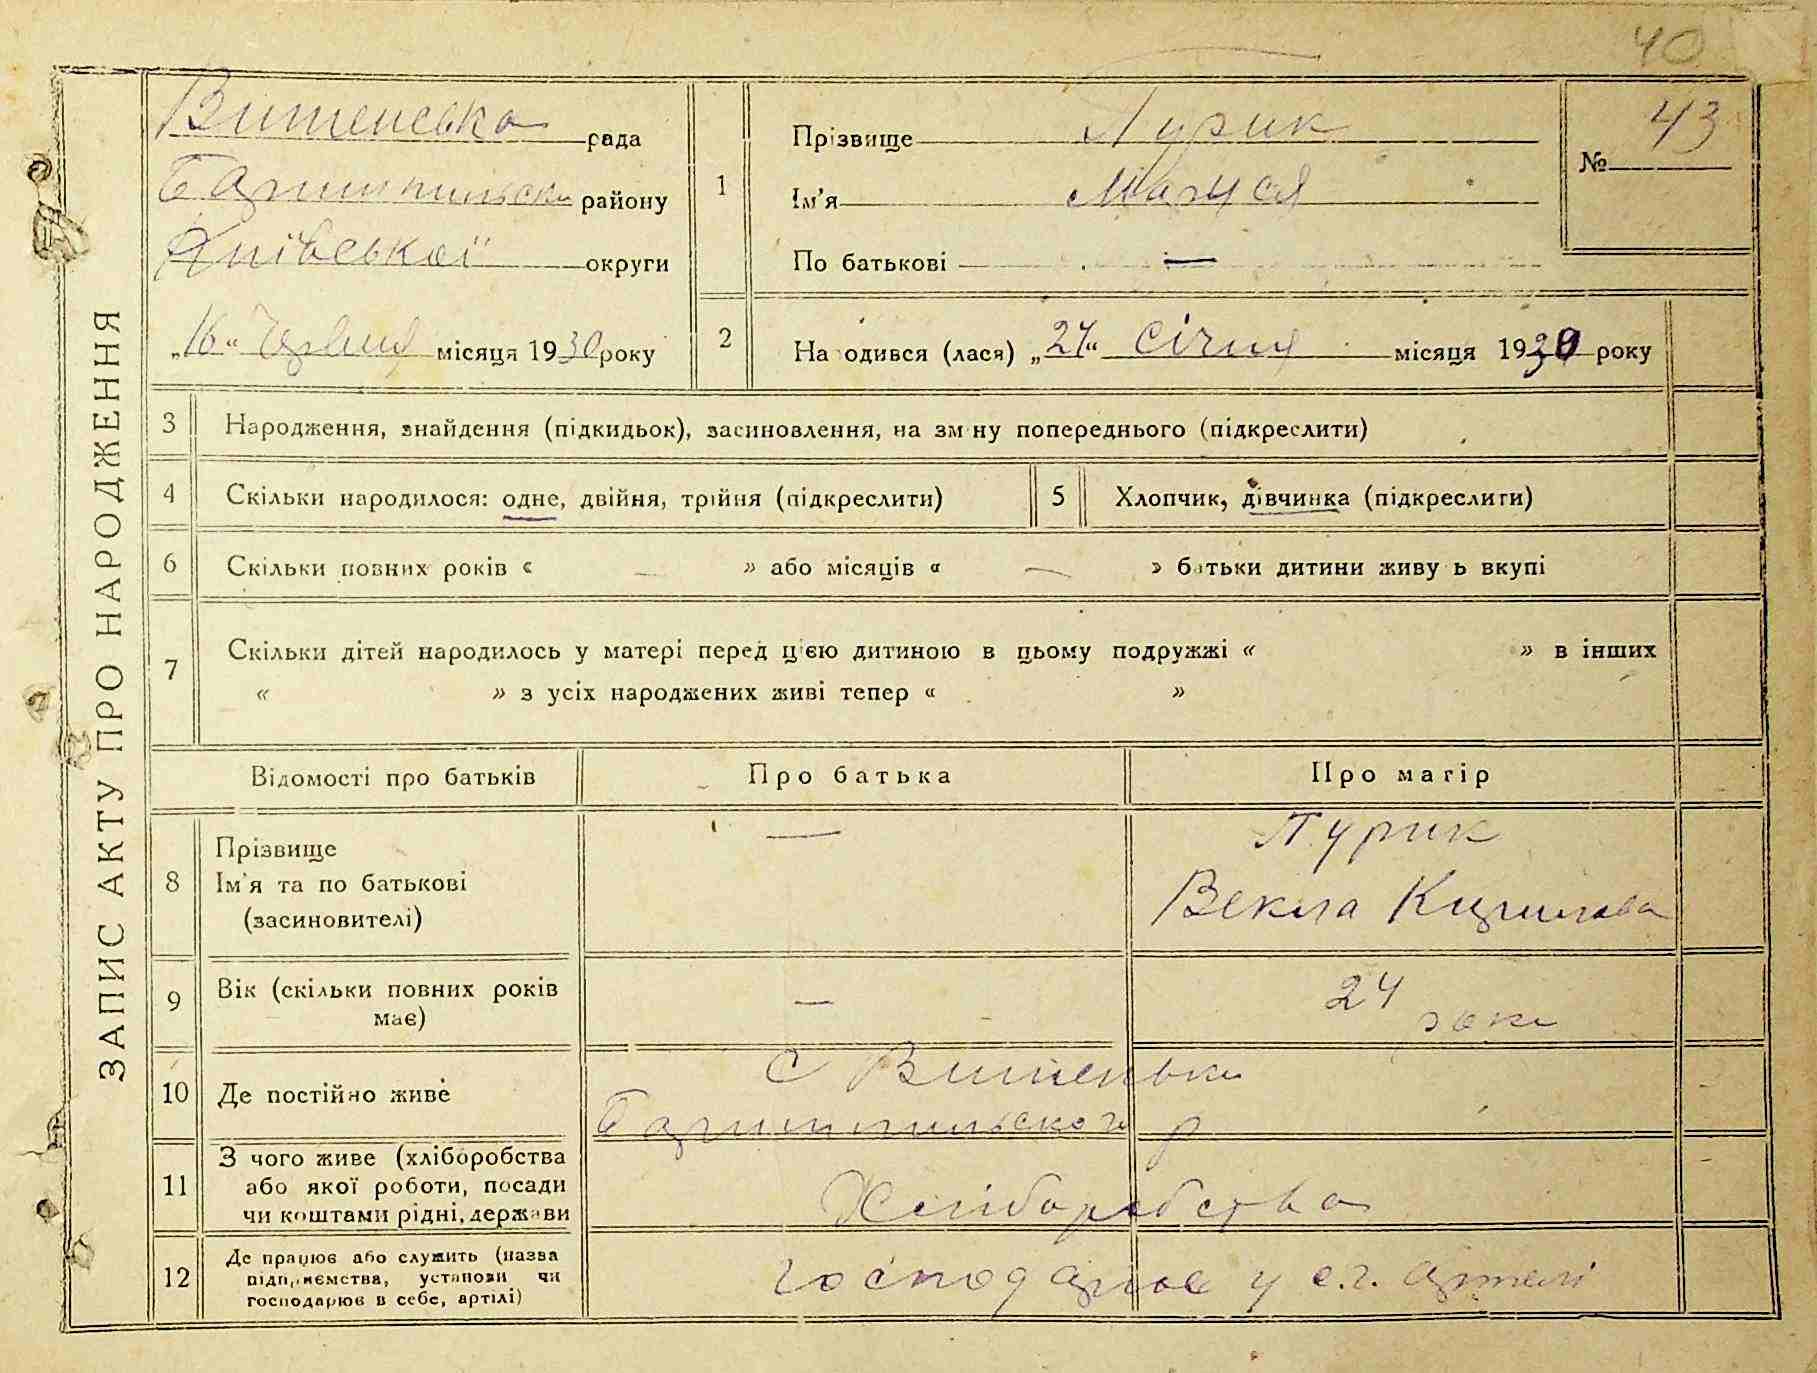 40
ЗАПИС АКТУ ПРО НАРОДЖЕННЯ
Вишенська рада
Баришпільськ району
Київської округи
„16“ червня місяця 1930 року
1
Прізвище Пурик
Ім'я Маруся
По батькові —
№ 43
2
На одився (лася) „27“ січня місяця 1930 року
3 Народження, знайдення (підкидьок), засиновлення, на зм ну попереднього (підкреслити)
4 Скільки народилося: одне, двійня, трійня (підкреслити)
5 Хлопчик, дівчинка (підкреслити)
6 Скільки повних років « — » або місяців « — » батьки дитини живу ь вкупі
7 Скільки дітей народилось у матері перед цією дитиною в цьому подружжі « » в інших
« » з усіх народжених живі тепер « »
Відомості про батьків Про батька Про матір
8 Прізвище
Ім'я та по батькові
(засиновителі)
—
Пурик
Векла Кирилова
9 Вік (скільки повних років
має)
—
24
роки
10 Де постійно живе
с Вишеньки
Баришпільского р
11 З чого живе (хліборобства
або якої роботи, посади
чи коштами рідні, держави
Хліборобства
12 Де працює або служить (назва
підприємства, установи чи
господарює в себе, артілі)
господарює у с.г. артелі